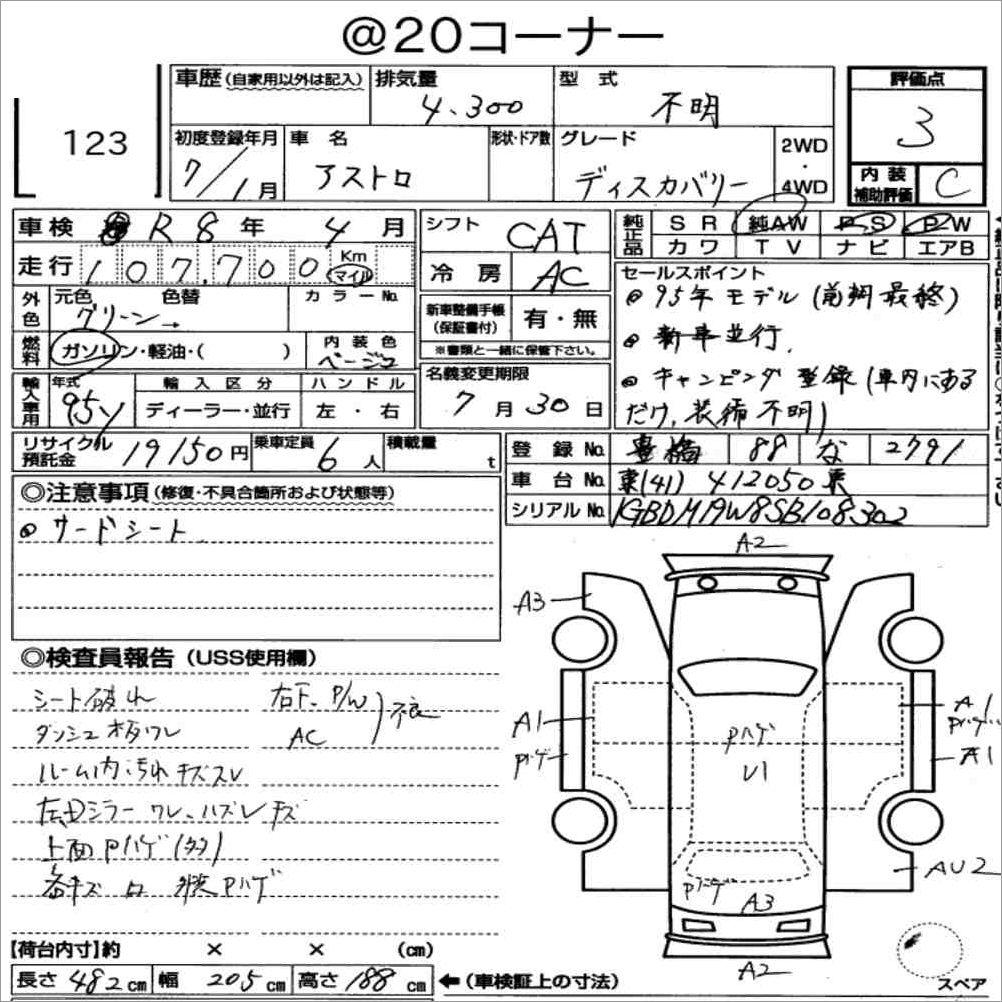 @20コーナー
123
車歴(自家用以外は記入)
排気量
4.300
型式
不明
評価点
3
初度登録年月
7/1月
車名
アストロ
形状・ドア数
グレード
ディスカバリー
2WD
・
4WD
内装
補助評価
C
車検 R8年 4月
シフト
CAT
純正品
SR 純AW PS PW
カワ TV ナビ エアB
走行
107,700
Km
マイル
冷房
AC
セールスポイント
◎95年モデル(前期最終)
◎新車並行.
◎キャンピング登録(車内にある
だけ,装備不明)
外色
元色 色替
グリーン→
カラーNo.
新車整備手帳
(保証書付)
有・無
※書類と一緒に保管下さい。
燃料
ガソリン・軽油・( )
内装色
ベージュ
輸入車用
年式
95y
輸入区分
ディーラー・並行
ハンドル
左・右
名義変更期限
7月30日
リサイクル
預託金
19150円
乗車定員
6人
積載量
t
登録No.
豊橋 88 な 2791
車台No.
東(41)412050東
シリアルNo.
1GBDM19W8SB108302
◎注意事項(修復・不具合箇所および状態等)
◎サードシート
◎検査員報告(USS使用欄)
シート破れ
右下、P/W
AC
不良
ダッシュ板ワレ
ルーム内汚れキズスレ
左Dミラーワレ、ハズレキズ
上面Pハゲ(多)
Pハゲ
A2
A3
A1
Pハゲ
Pハゲ
U1
A1
Pハゲ
A1
AU2
Pハゲ
A3
A2
スペア
【荷台内寸】約 × × (cm)
長さ482cm 幅205cm 高さ188cm
←(車検証上の寸法)